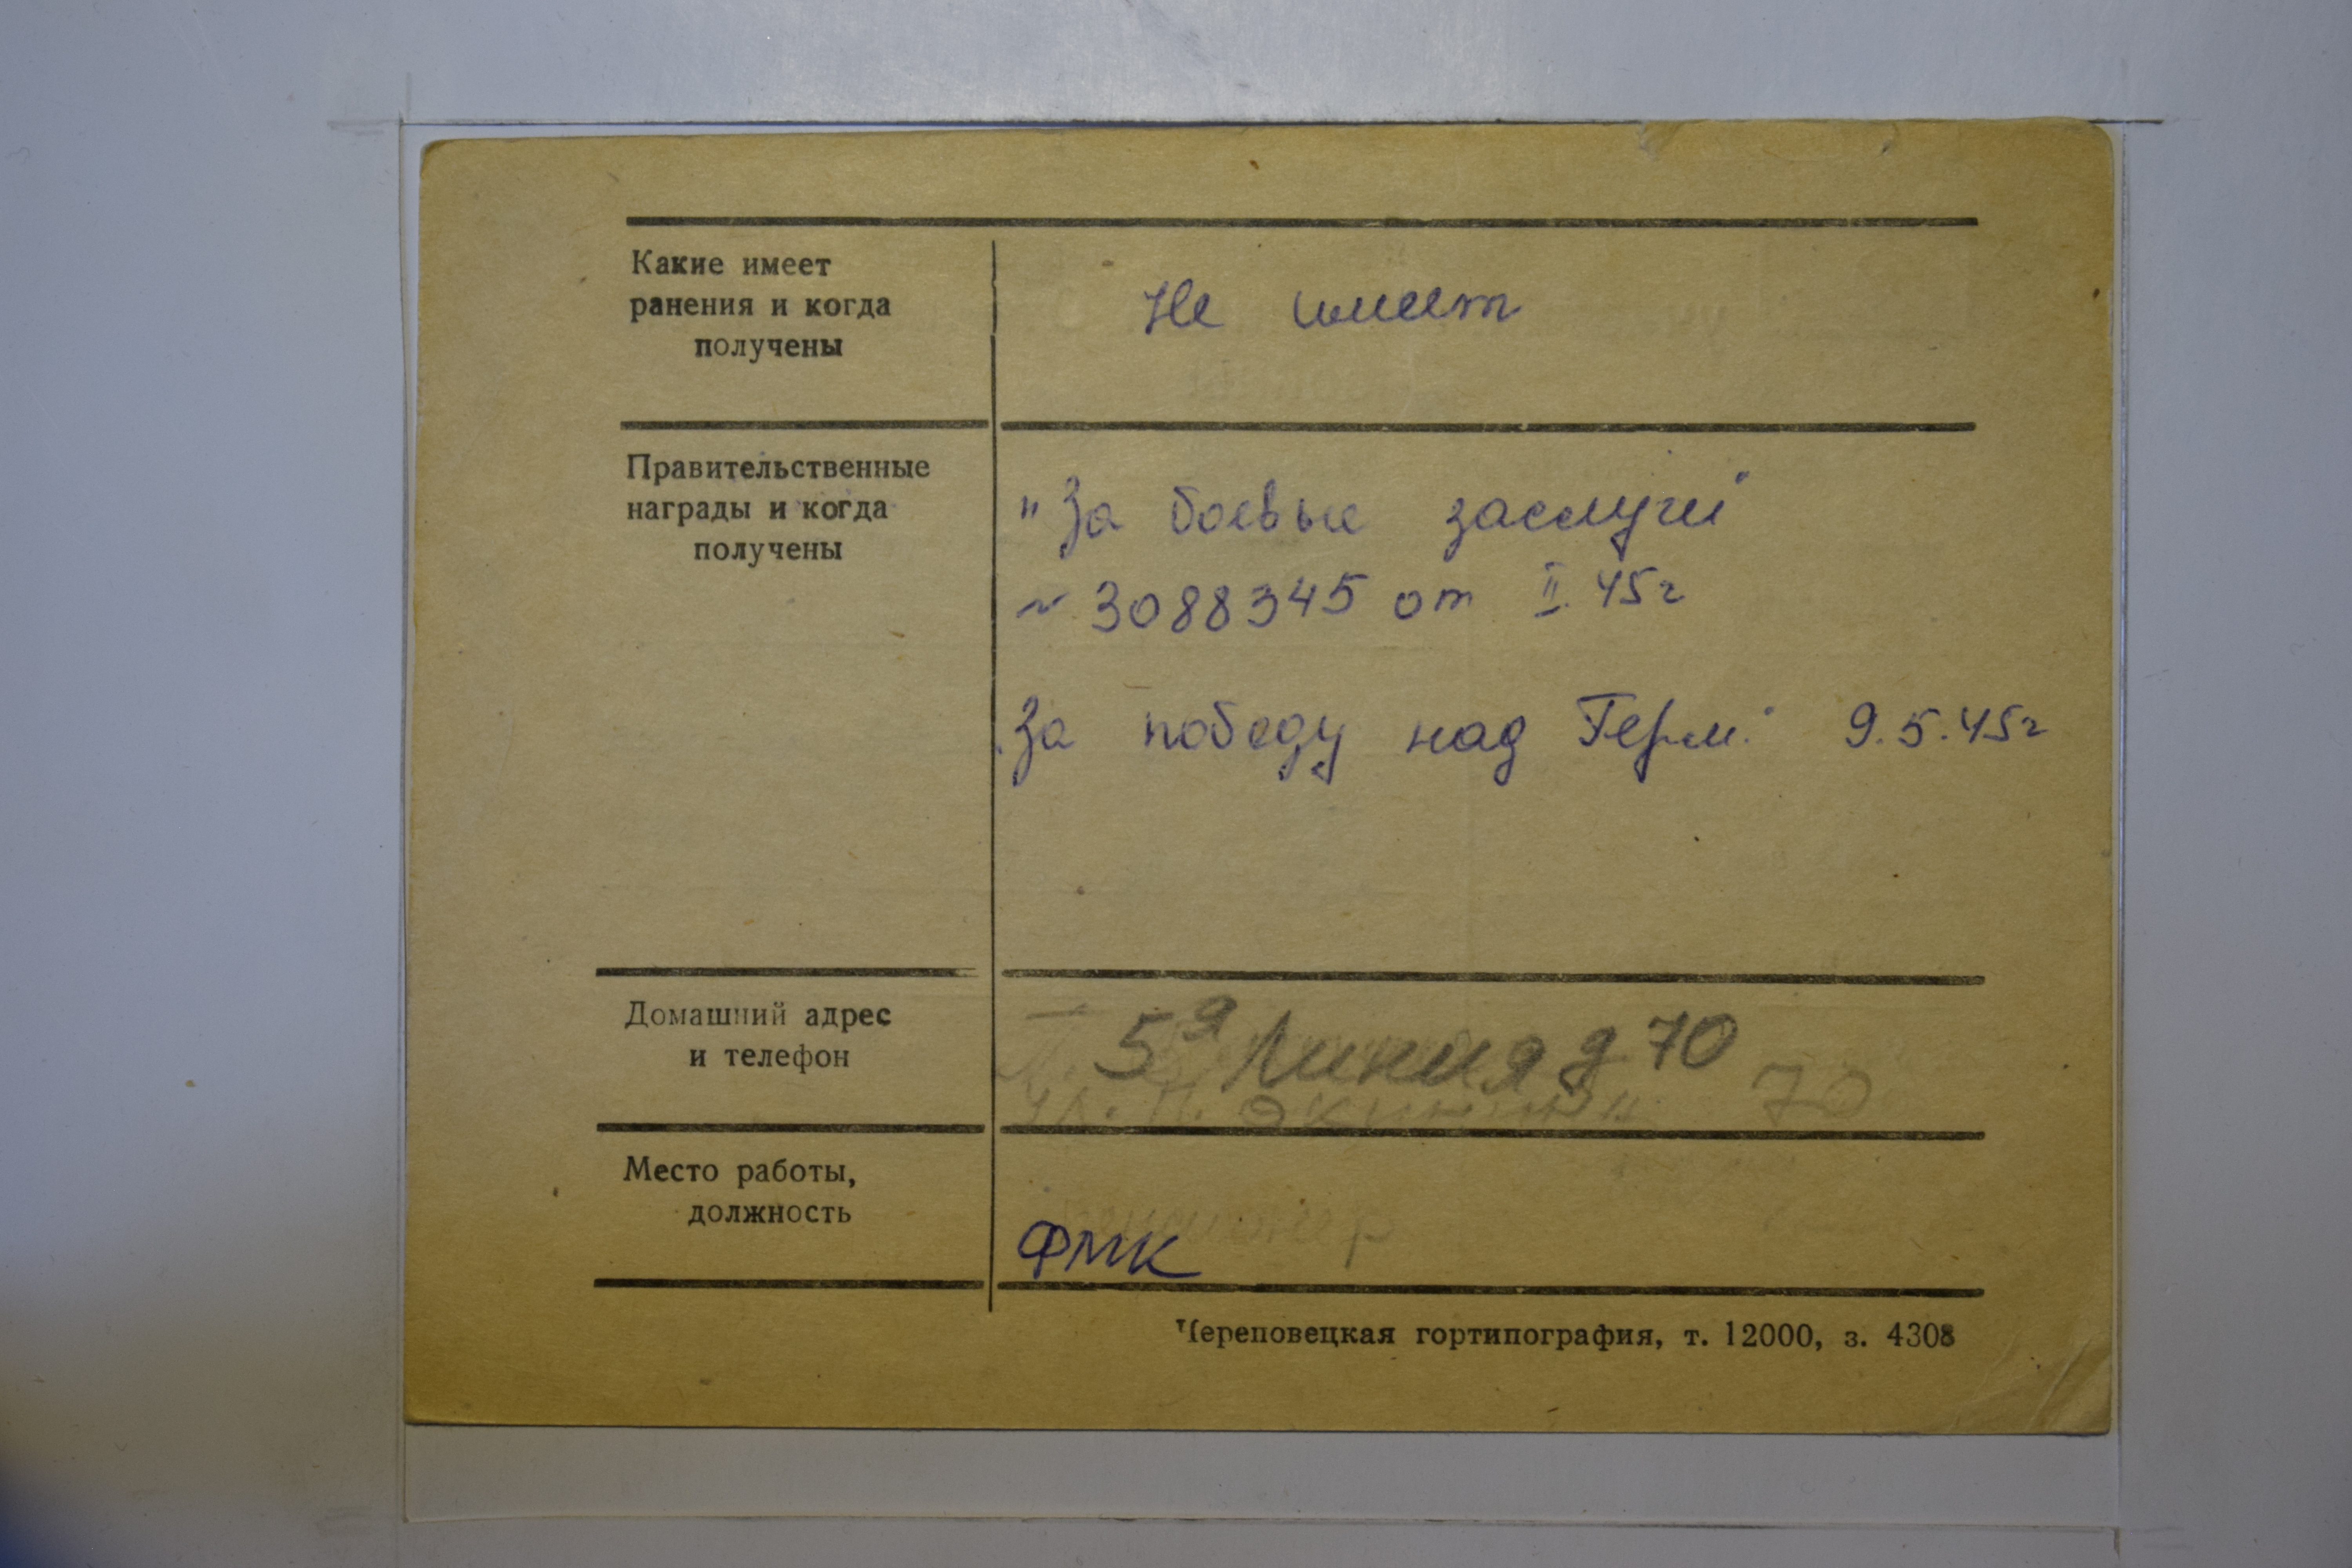 Какие имеет
ранения и когда
получены
Не имеет
Правительственные
награды и когда
получены
"За боевые заслуги"
~ 3088345 от II. 45г
"За победу над Герм." 9.5.45г
Домашний адрес
и телефон
5я Линия д 70
ул. 70
Место работы,
должность
пенсионер
ФМК
Череповецкая гортипография, т. 12000, з. 4308